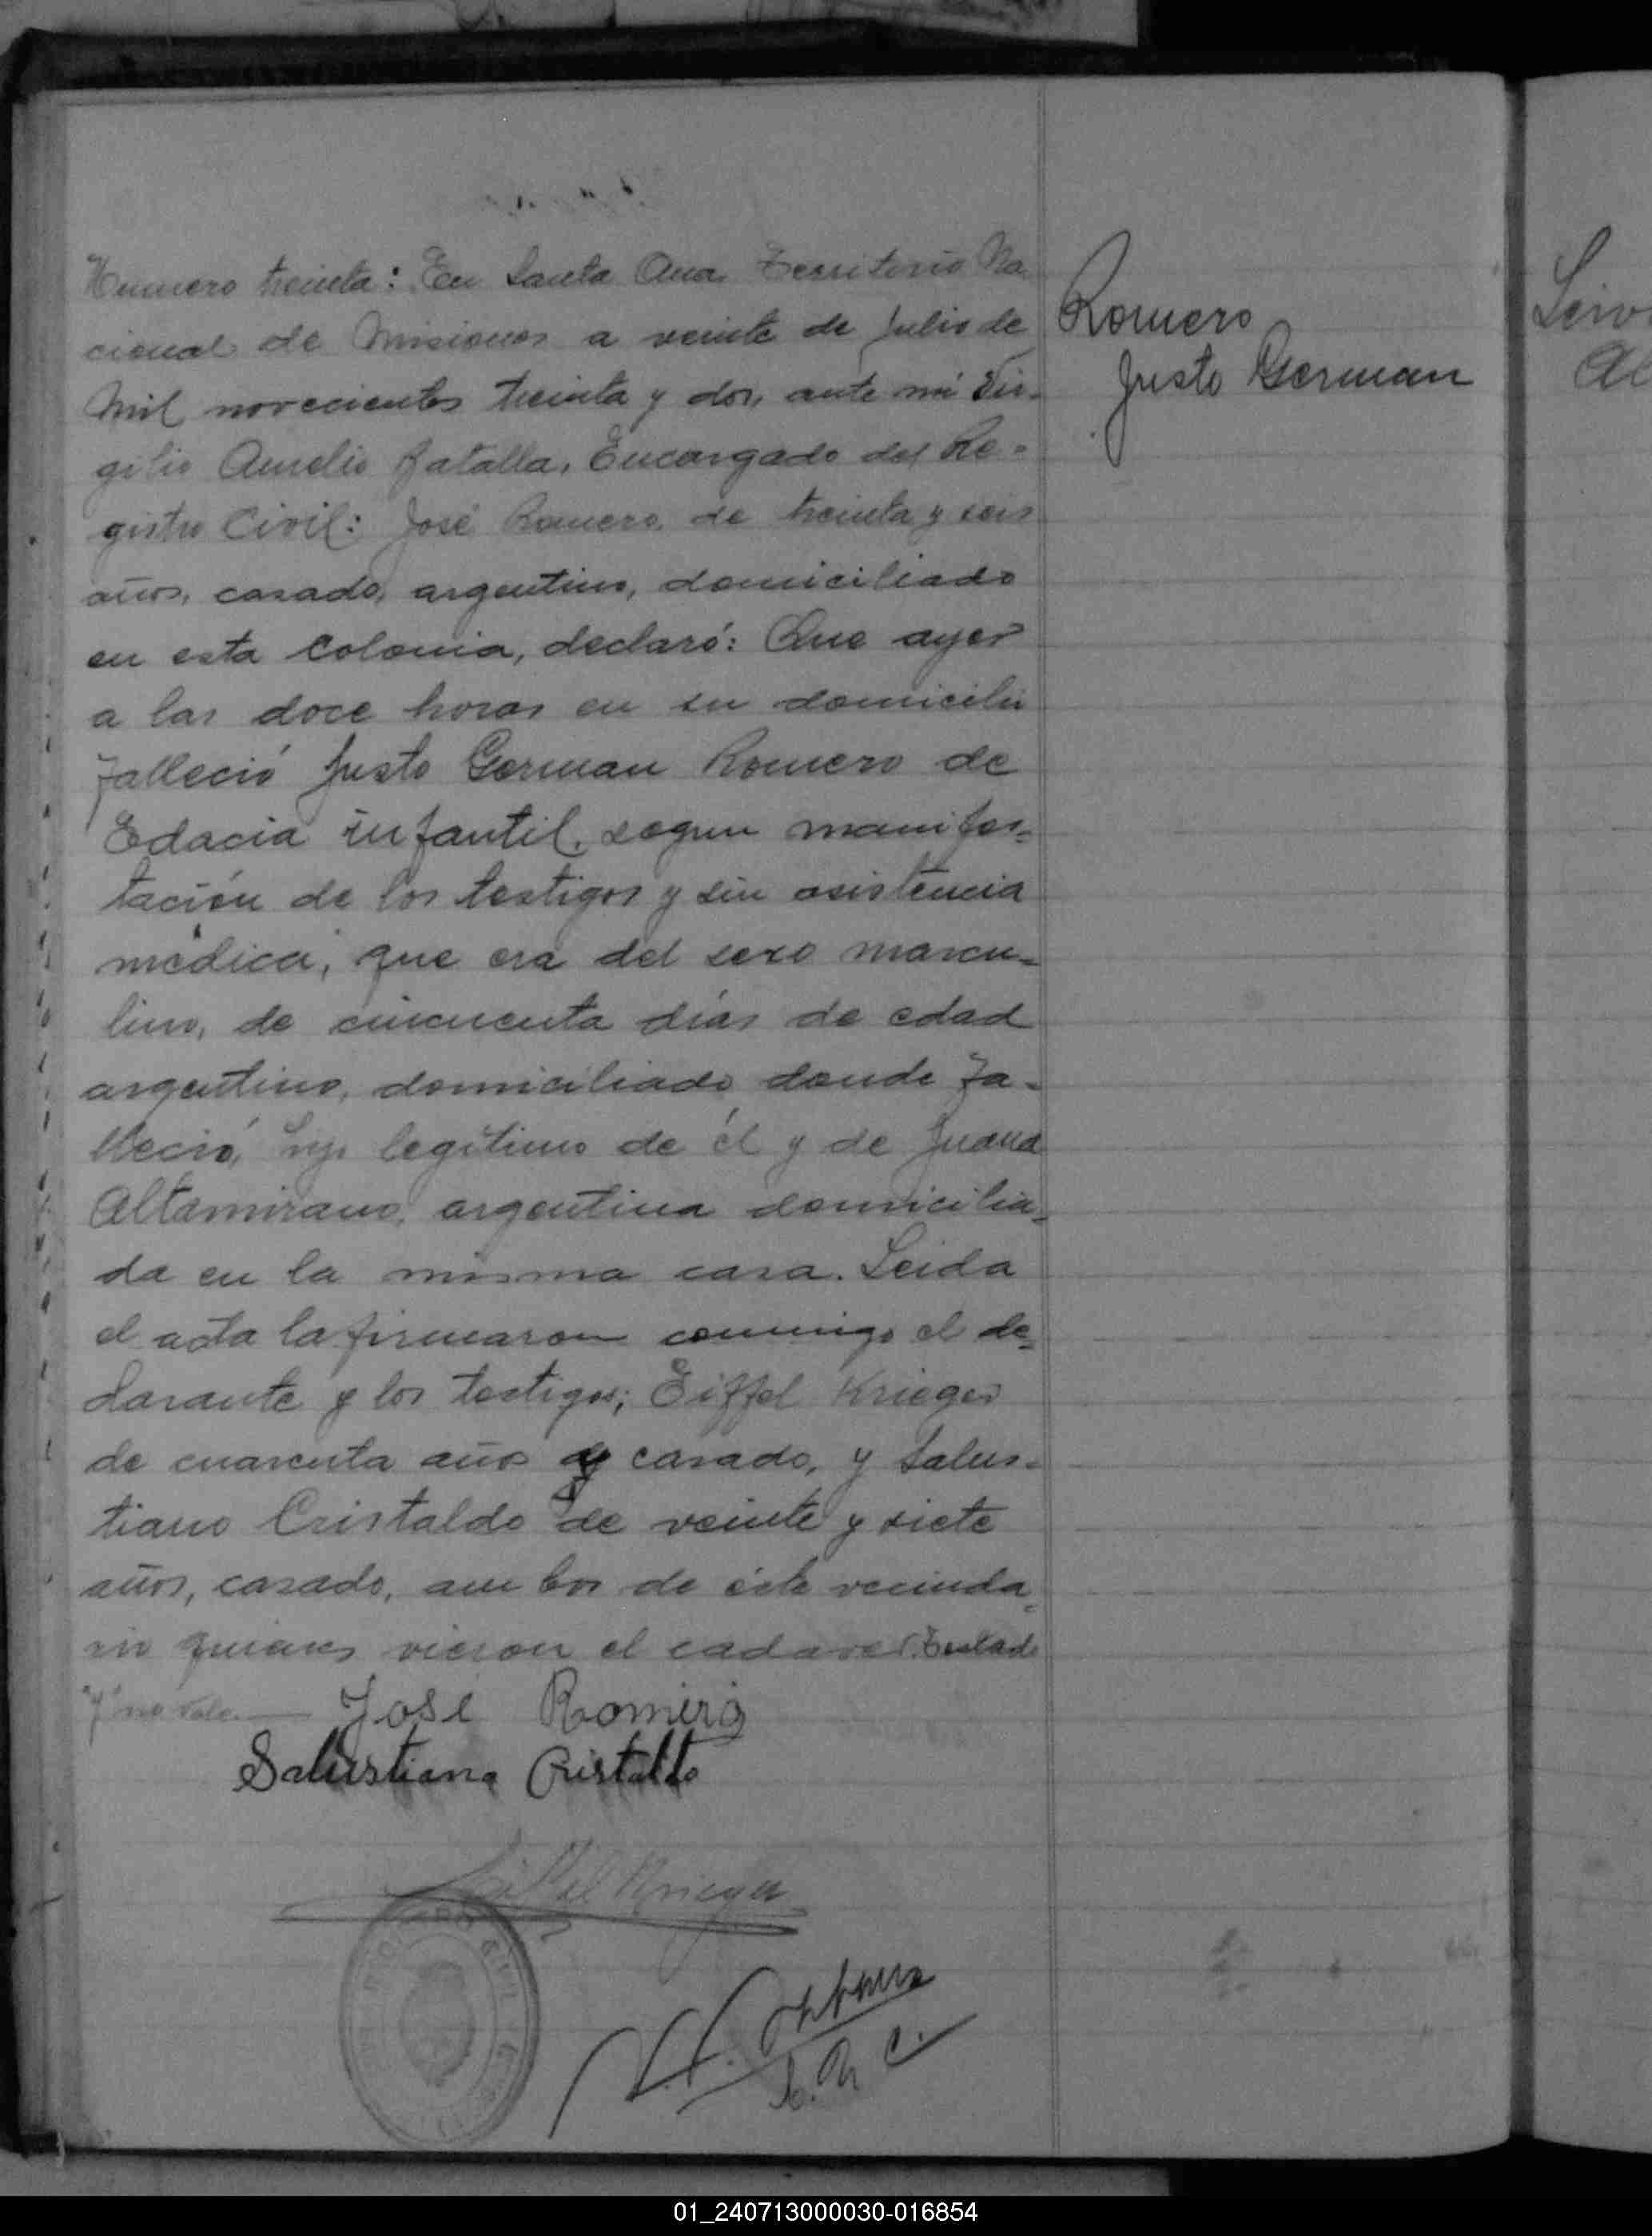 Numero treinta: En Santa Ana Territorio Na-
cional de Misiones a veinte de Julio de
Mil novecientos treinta y dos, ante mi Vir-
gilio Aurelio Batalla, Encargado del Re-
gistro Civil: José Romero, de treinta y seis
años, casado, argentino, domiciliado
en esta Colonia, declaró: Que ayer
a las doce horas en su domicilio
falleció Justo German Romero de
Edacia infantil, segun manifes-
tación de los testigos y sin asistencia
médica, que era del sexo mascu-
lino, de cincuenta días de edad
argentino, domiciliado donde fa-
lleció, hijo legítimo de él y de Juana
Altamirano, argentina domicilia-
da en la misma casa. Leida
el acta la firmaron conmigo el de-
clarante y los testigos; Eiffel Krieger
de cuarenta años y casado, y Salus-
tiano Cristaldo de veinte y siete
años, casado, ambos de éste vecinda-
rio quienes vieron el cadaver. Testado
"y" no vale.— José Romero
Salustiano Cristaldo
Eiffel Krieger
Romero
Justo German
01_240713000030-016854